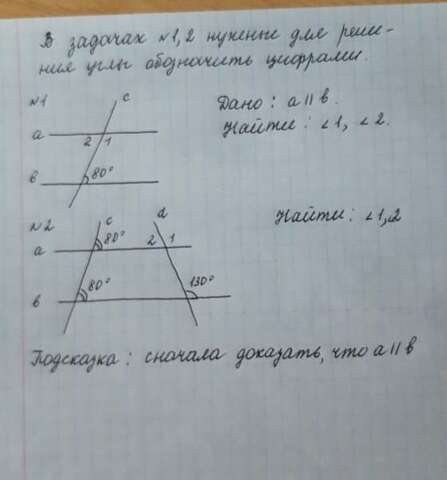 В задачах №1,2 нужные для реше-
ния углы обозначить цифрами.
№1
c
Дано: a ∥ в.
a
2 1
Найти: ∠1, ∠2.
в
80°
№2
c
d
Найти: ∠1,2
a
80°
2 1
в
80°
130°
Подсказка: сначала доказать, что a ∥ в